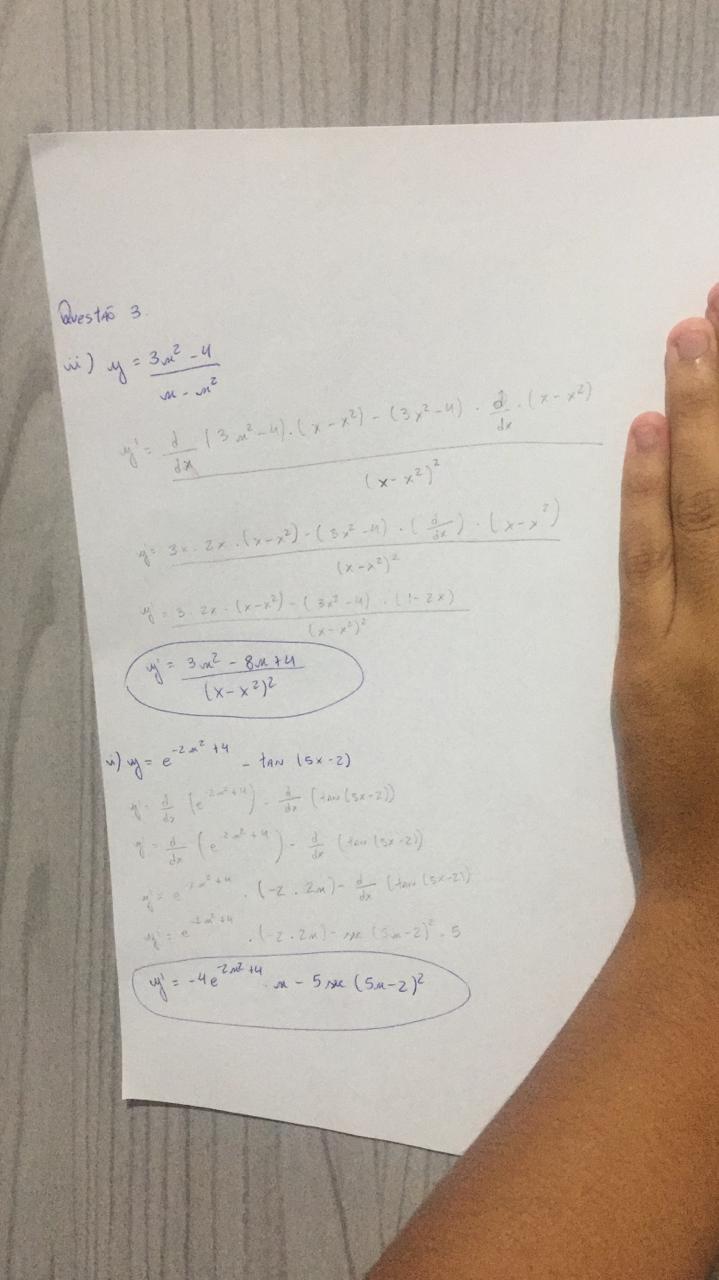 Questão 3.
iii) y = (3x² - 4) / (x - x²)
y' = d/dx (3x² - 4) · (x - x²) - (3x² - 4) · d/dx · (x - x²) / (x - x²)²
y' = 3x · 2x · (x - x²) - (3x² - 4) · (d/dx) · (x - x²) / (x - x²)²
y' = 3 · 2x · (x - x²) - (3x² - 4) · (1 - 2x) / (x - x²)²
y' = (3x² - 8x + 4) / (x - x²)²
y = e^(-2x² + 4) - tan (5x - 2)
y' = d/dx (e^(-2x² + 4)) - d/dx (tan (5x - 2))
y' = d/dx (e^(-2x² + 4)) - d/dx (tan (5x - 2))
y' = e^(-2x² + 4) · (-2 · 2x) - d/dx (tan (5x - 2))
y' = e^(-2x² + 4) · (-2 · 2x) - sec (5x - 2)² · 5
y' = -4e^(-2x² + 4) · x - 5 sec (5x - 2)²